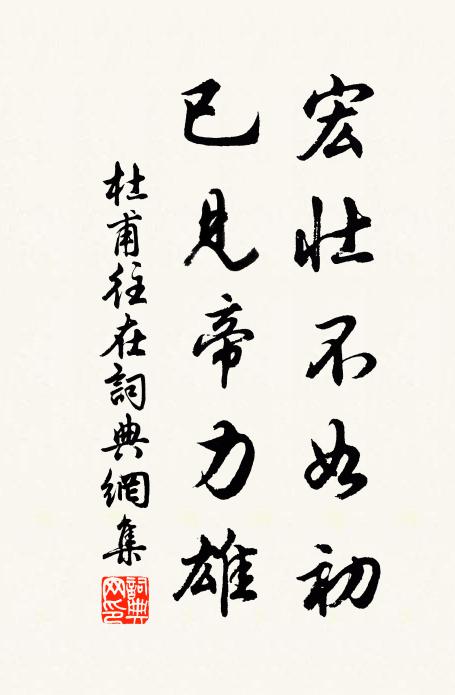 宏壯不如初
已見帝力雄
杜甫往在詞典網集
詞典
网印